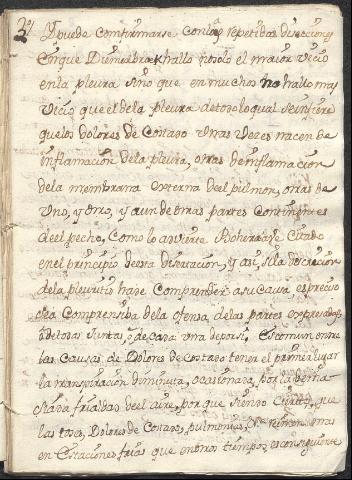 Ypuede comfirmarse con las repetidas disecciones
Conque Diemerbroek hallo no solo el maior vicio
en la pleura sino que en muchos no hallo mas
vicio que el de la pleura de todo lo qual se infiere
que los dolores de Costado unas vezes nacen de
inflamacion de la pleura, otras de inflamacion
de la membrana externa del pulmon, otras de
uno, y otro, y aun de otras partes Continentes
de el pecho, Como lo advierte citado
en el principio de esta disertacion, y asi, si la discrecion
de la pleuritis hade Comprender asu Causa, es preciso
sea Comprensiba de la ofensa de las partes expresadas
ò de todas Juntas ò de cada una depor si, Es comun entre
las Causas de Dolores de Costado tener el primer lugar
la transpiracion diminuta, ocasionada, por la dema
siada frialdad de el aire, por que siendo Cierto, que
las toses, Dolores de Costado, pulmonias, reinen mas
en Estaciones frias que en otros tiempos, es consiguiente